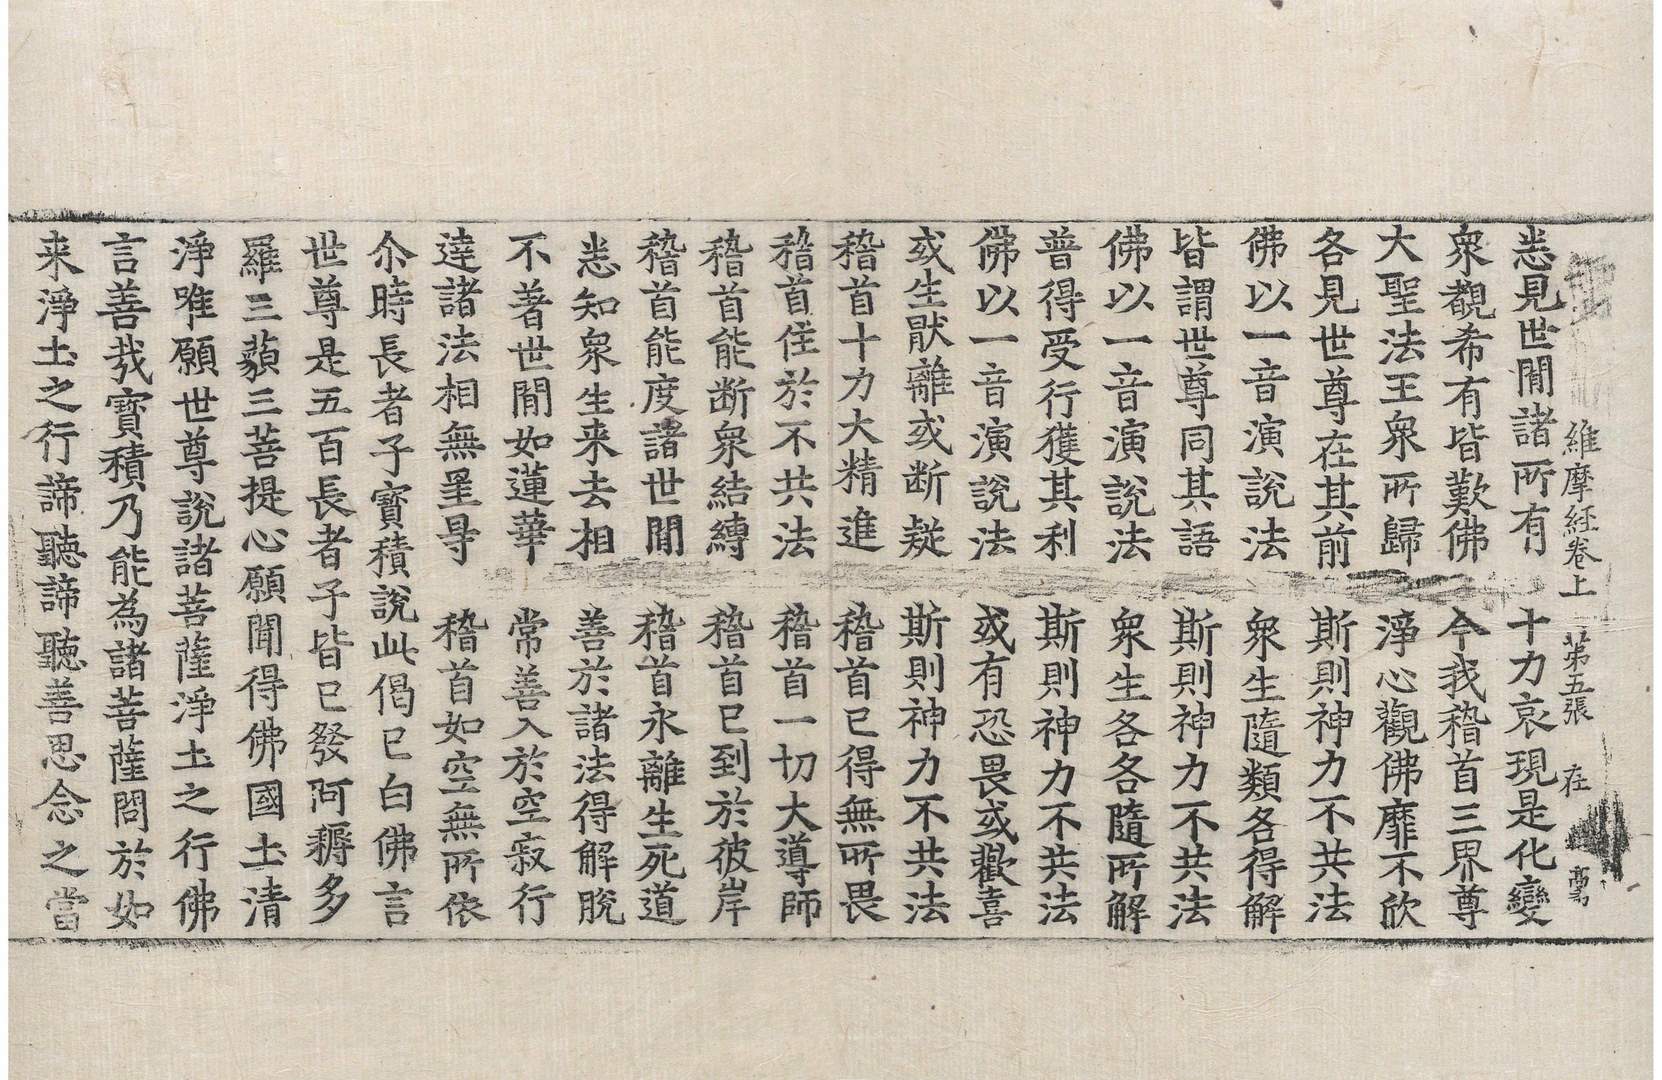 維摩経卷上 第五張 在
悉見世間諸所有 十力哀現是化變
衆覩希有皆歎佛 今我稽首三界尊
大聖法王衆所歸 淨心觀佛靡不欣
各見世尊在其前 斯則神力不共法
佛以一音演說法 衆生隨類各得解
皆謂世尊同其語 斯則神力不共法
佛以一音演說法 衆生各各隨所解
普得受行獲其利 斯則神力不共法
佛以一音演說法 或有恐畏或歡喜
或生猒離或断疑 斯則神力不共法
稽首十力大精進 稽首已得無所畏
稽首住於不共法 稽首一切大導師
稽首能断衆結縛 稽首已到於彼岸
稽首能度諸世間 稽首永離生死道
悉知衆生来去相 善於諸法得解脫
不著世間如蓮華 常善入於空寂行
達諸法相無罣㝵 稽首如空無所依
尒時長者子寶積說此偈已白佛言
世尊是五百長者子皆已發阿耨多
羅三藐三菩提心願聞得佛國土清
淨唯願世尊說諸菩薩淨土之行佛
言善哉寶積乃能為諸菩薩問於如
来淨土之行諦聽諦聽善思念之當